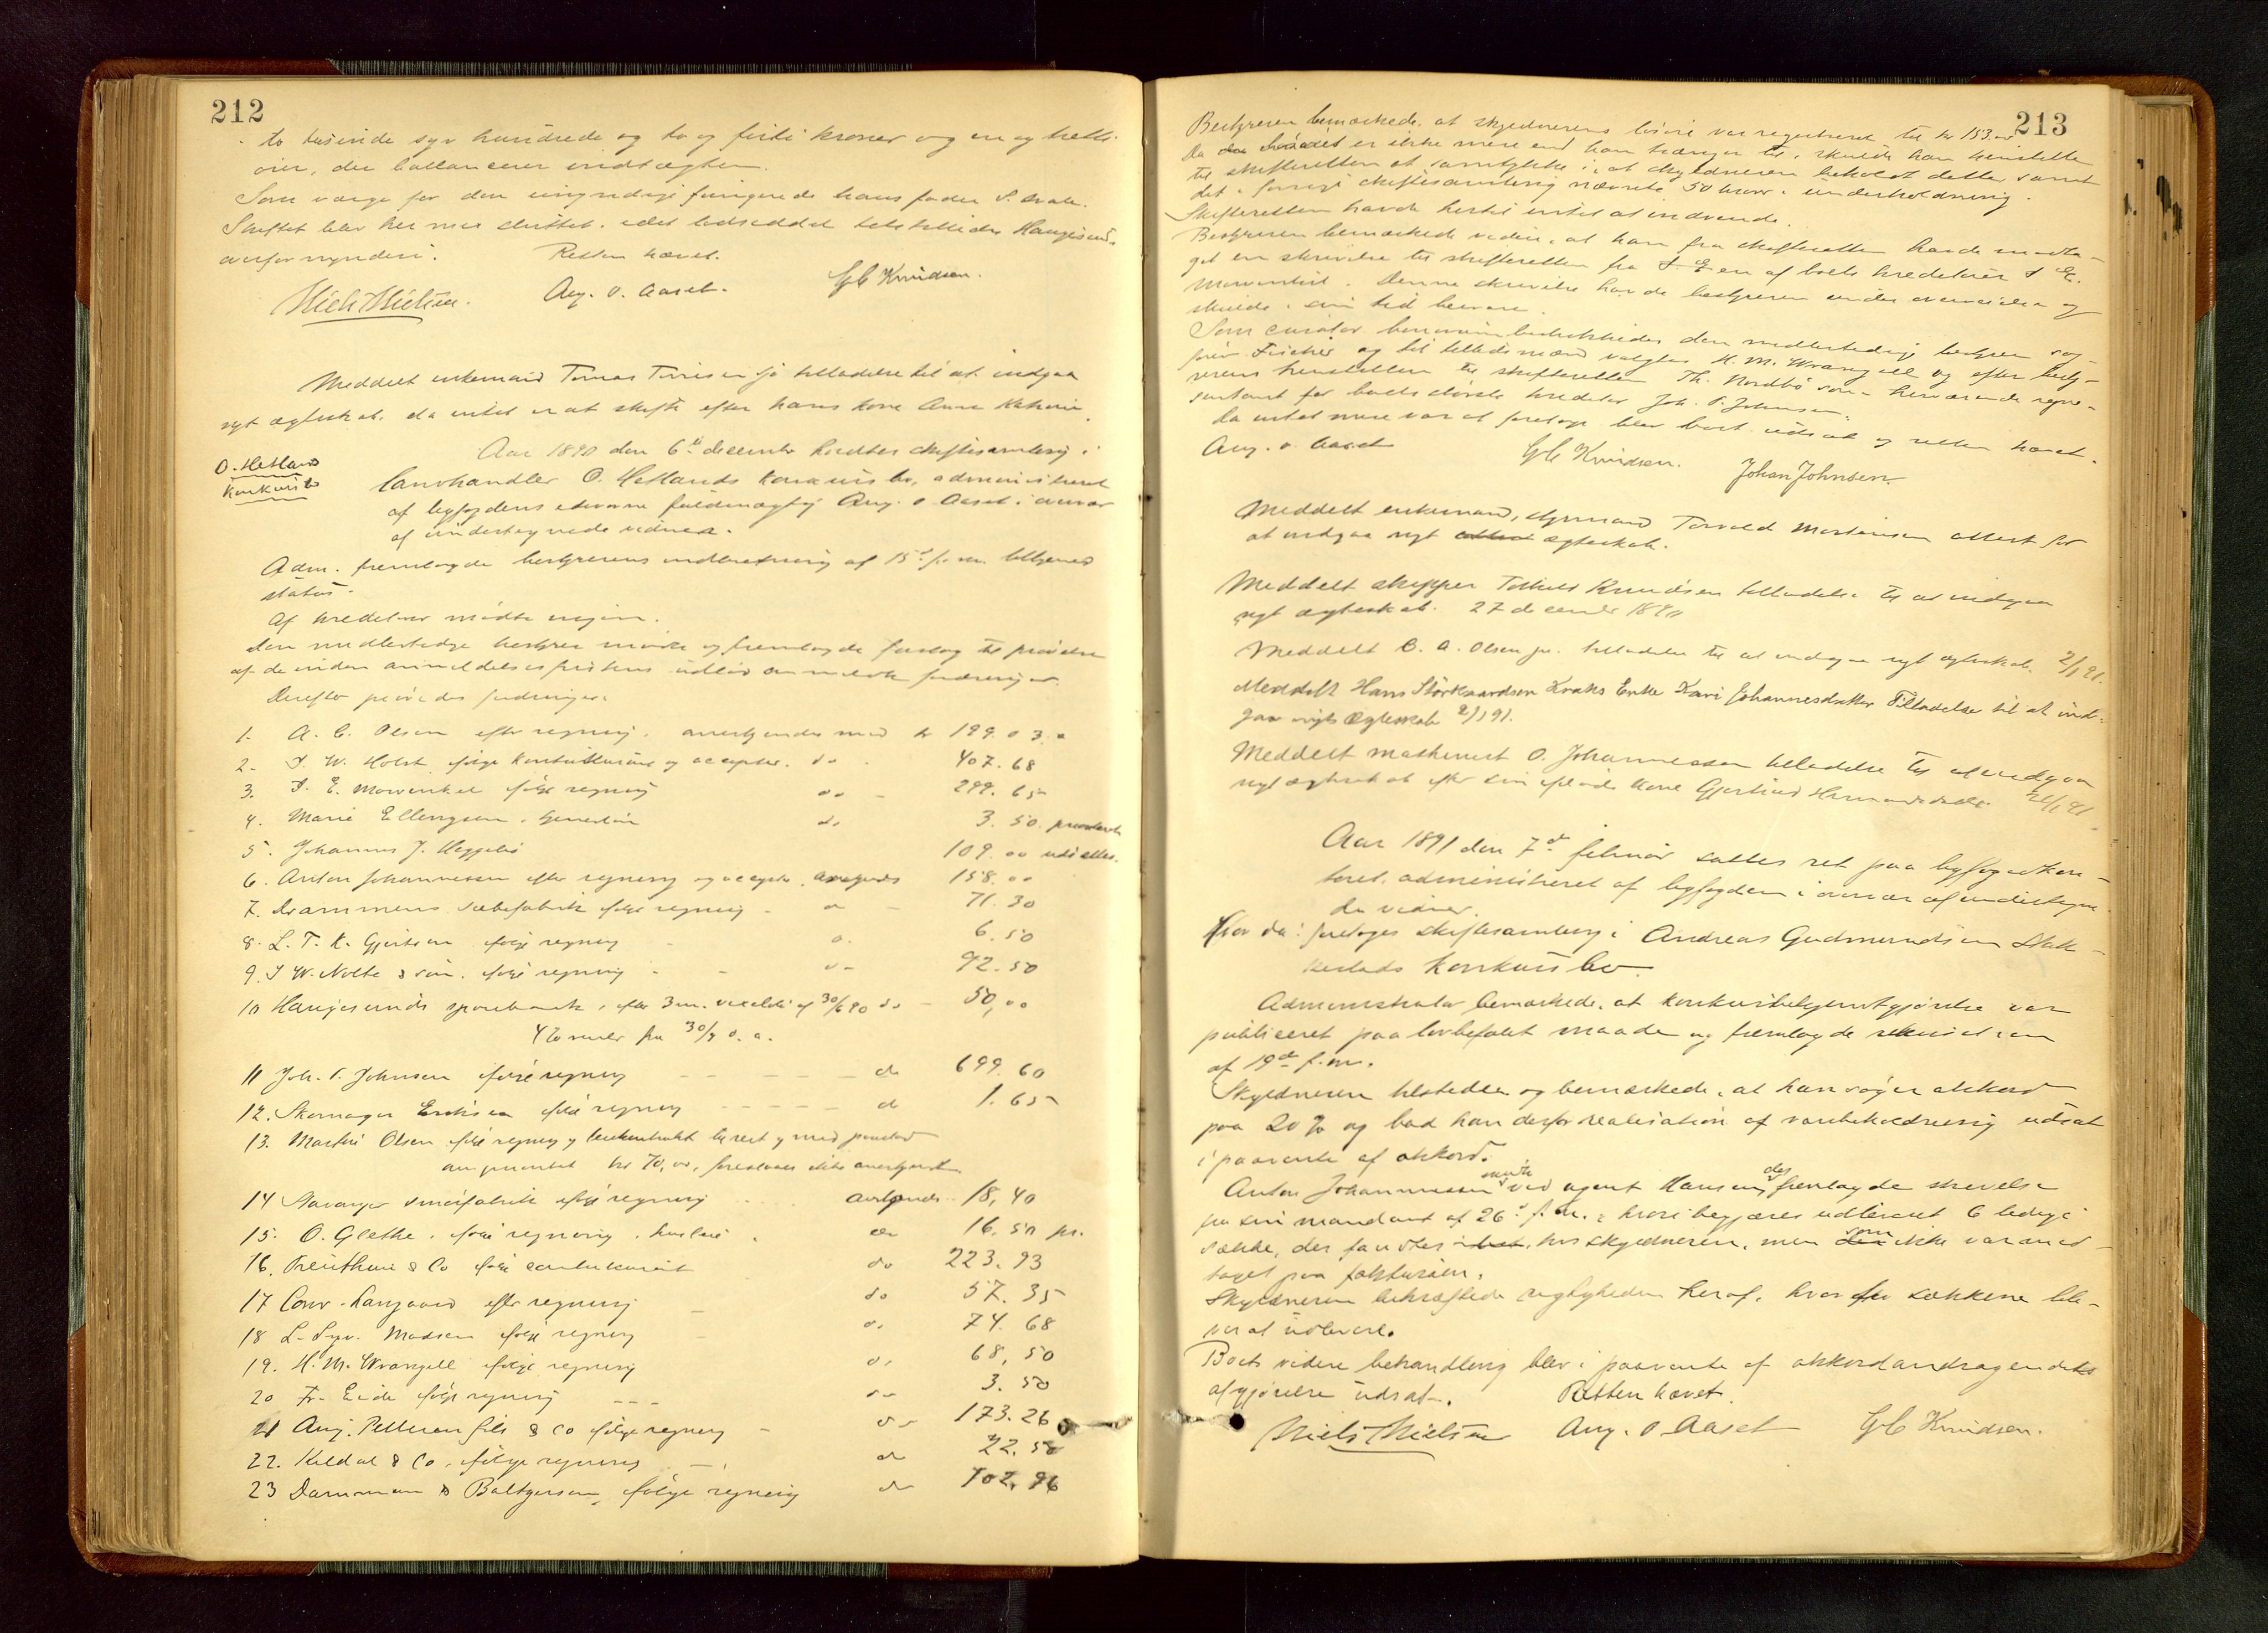 212
to tusinde syv hundrede og to og firti kroner og en og tretti
øre, der ballancerer indtægten.
Som værge for den umyndige fungerede hans fader
Skiftet blev hermed sluttet.
overformynderi. Retten hævet.
Niels Nielsen. Aug. O. Aaset. G C Knudsen.
Meddelt enkemand Tomas tilladelse til at indgaa
nyt ægteskab, da intet er at skifte efter hans kone Anna
O. Hetlands
konkursbo
Aar 1890 den 6te december holdtes skiftesamling i
landhandler O. Hetlands konkursbo, administreret
af byfogdens edsvorne fuldmægtig Aug. O Aaset i overvær
af undertegnede vidner.
Adm. fremlagde bestyrerens indberetning af 15de f.m. tilligemed
status.
Af kreditorer mødte ingen.
Den midlertidige bestyrer mødte og fremlagde forslag til prøvelse
af de inden anmeldelsesfristens udløb anmeldte fordringer.
Derefter prøvedes fordringer:
1. A. C. Olsen efter regning, anerkjendes med kr 199.03
2. J. W. Holst ifølge kontokurant og accepter. do 407.68
3. J. E. Mowinkel ifølge regning do 299.65
4. Marie Ellingsen, do 3.50 prioriteret
5. Johannes J. Heggebø 109.00 udsættes.
6. Anton Johannessen efter regning og accept, anerkjendes 158.00
7. Drammens sæbefabrik ifølge regning - do - 71.30
8. L. T. K. Gjertsen ifølge regning do. 6.50
9. J W. Nolte & søn. ifølge regning - - do 92.50
10 Haugesunds sparebank, efter 3 m. veksel af 30/6 90 do - 50,00
11 Joh. P. Johnsen ifølge regning - - - do 699.60
12. Skomager Eriksen ifølge regning - - - do 1.65
13. Martin Olsen ifølge regning og
14 Stavanger ifølge regning anerkjendes 18,40
15. O. Glette, ifølge regning, husleie, do 16.50 pr.
16. & Co ifølge contokurant do 223.93
17 Conr. Langaard efter regning - do 57.35
18 L. Syv. Madsen ifølge regning do 74.68
19. H. M. Wrangell ifølge regning do 68,50
20 Fr. Eide ifølge regning - - - do 3.50
21 Aug. Pellerin fils & Co ifølge regning - do 173.26
22. Kildal & Co, ifølge regning - do 22.50
23 Dammann & Baltzersen, ifølge regning do 102,96
213
Bestyreren bemærkede, at skyldnerens løsøre var registreret til kr 153.00
Da er ikke mere end han trænger til, skulde han henstille
til skifteretten at samtykke i, at skyldneren beholdt dette samt
det i forrige skiftesamling nævnte 50 kroner i underholdning.
Skifteretten havde hertil intet at indvende.
Bestyreren bemærkede videre, at han fra skifteretten havde modta-
get en skrivelse til skifteretten fra en af boets kreditorer J E.
Mowinkel. Denne skrivelse havde bestyreren under overveielse og
skulde i sin tid besvare.
Som curator bonorum beskikkedes den midlertidige bestyrer sag-
fører Fischer og til tillidsmænd valgtes H. M. Wrangell og efter besty-
rerens henstillen til skifteretten Th. Nordbø som herværende repre-
sentant for boets største kreditor Joh. P. Johnsen.
Da intet mere var at foretage blev boet udsat og retten hævet.
Aug. O. Aaset G C Knudsen. Johan Johnsen.
Meddelt enkemand, styrmand Torvald Mortensen attest for
at indgaa nyt ægteskab.
Meddelt skipper Tollik Knudsen tilladelse til at indgaa
nyt ægteskab. 27 december 1890
Meddelt C. A. Olsen jr. tilladelse til at indgaa nyt ægteskab. 2/1 91.
Meddelt Hans Størksardsen Kvals Enke Kari Johannesdatter Tilladelse til at ind-
gaa nyt Ægteskab 2/1 91.
Meddelt maskinist O. Johannessen tilladelse til at indgaa
nyt ægteskab efter sin afdøde kone Gjertrud
Aar 1891 den 7de februar sattes ret paa byfogedkon-
toret, administreret af byfogden i overvær af undertegne-
de vidner.
Hvor da: foretoges skiftesamling i Andreas Gudmundsen Stak-
kestads konkursbo.
Administrator bemærkede, at konkursbekjendtgjørelse var
publiceret paa lovbefalet maade og fremlagde rekvisitionen
af 19de f.m.
Skyldneren tilstede og bemærkede, at han søger akkord
paa 20 % og bad han derfor realisation af varebeholdning udsat
i paavente af akkord.
Anton Johannessen mødte ved agent Hansen, der fremlagde skrivelse
fra sin mandant af 26de f. m., hvori begjæres udleveret 6 ledige
sække, der fandtes hos skyldneren, men som ikke var med-
taget paa fakturaen.
Skyldneren bekræftede rigtigheden heraf, hvorfor sækkene ble-
ver at udlevere.
Boets videre behandling blev i paavente af akkordandragendets
afgjørelse udsat. Retten hævet.
Niels Nielsen Aug. O Aaset G C Knudsen.